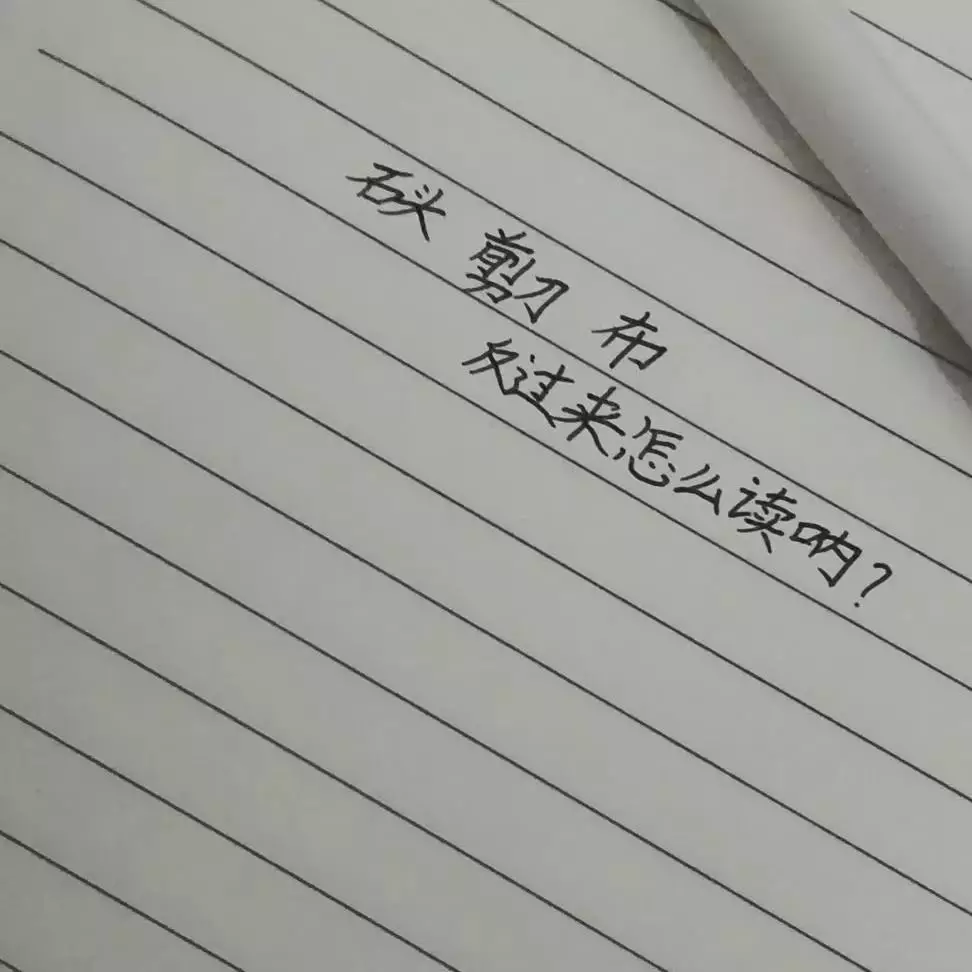 石头 剪刀 布
反过来怎么读呐?